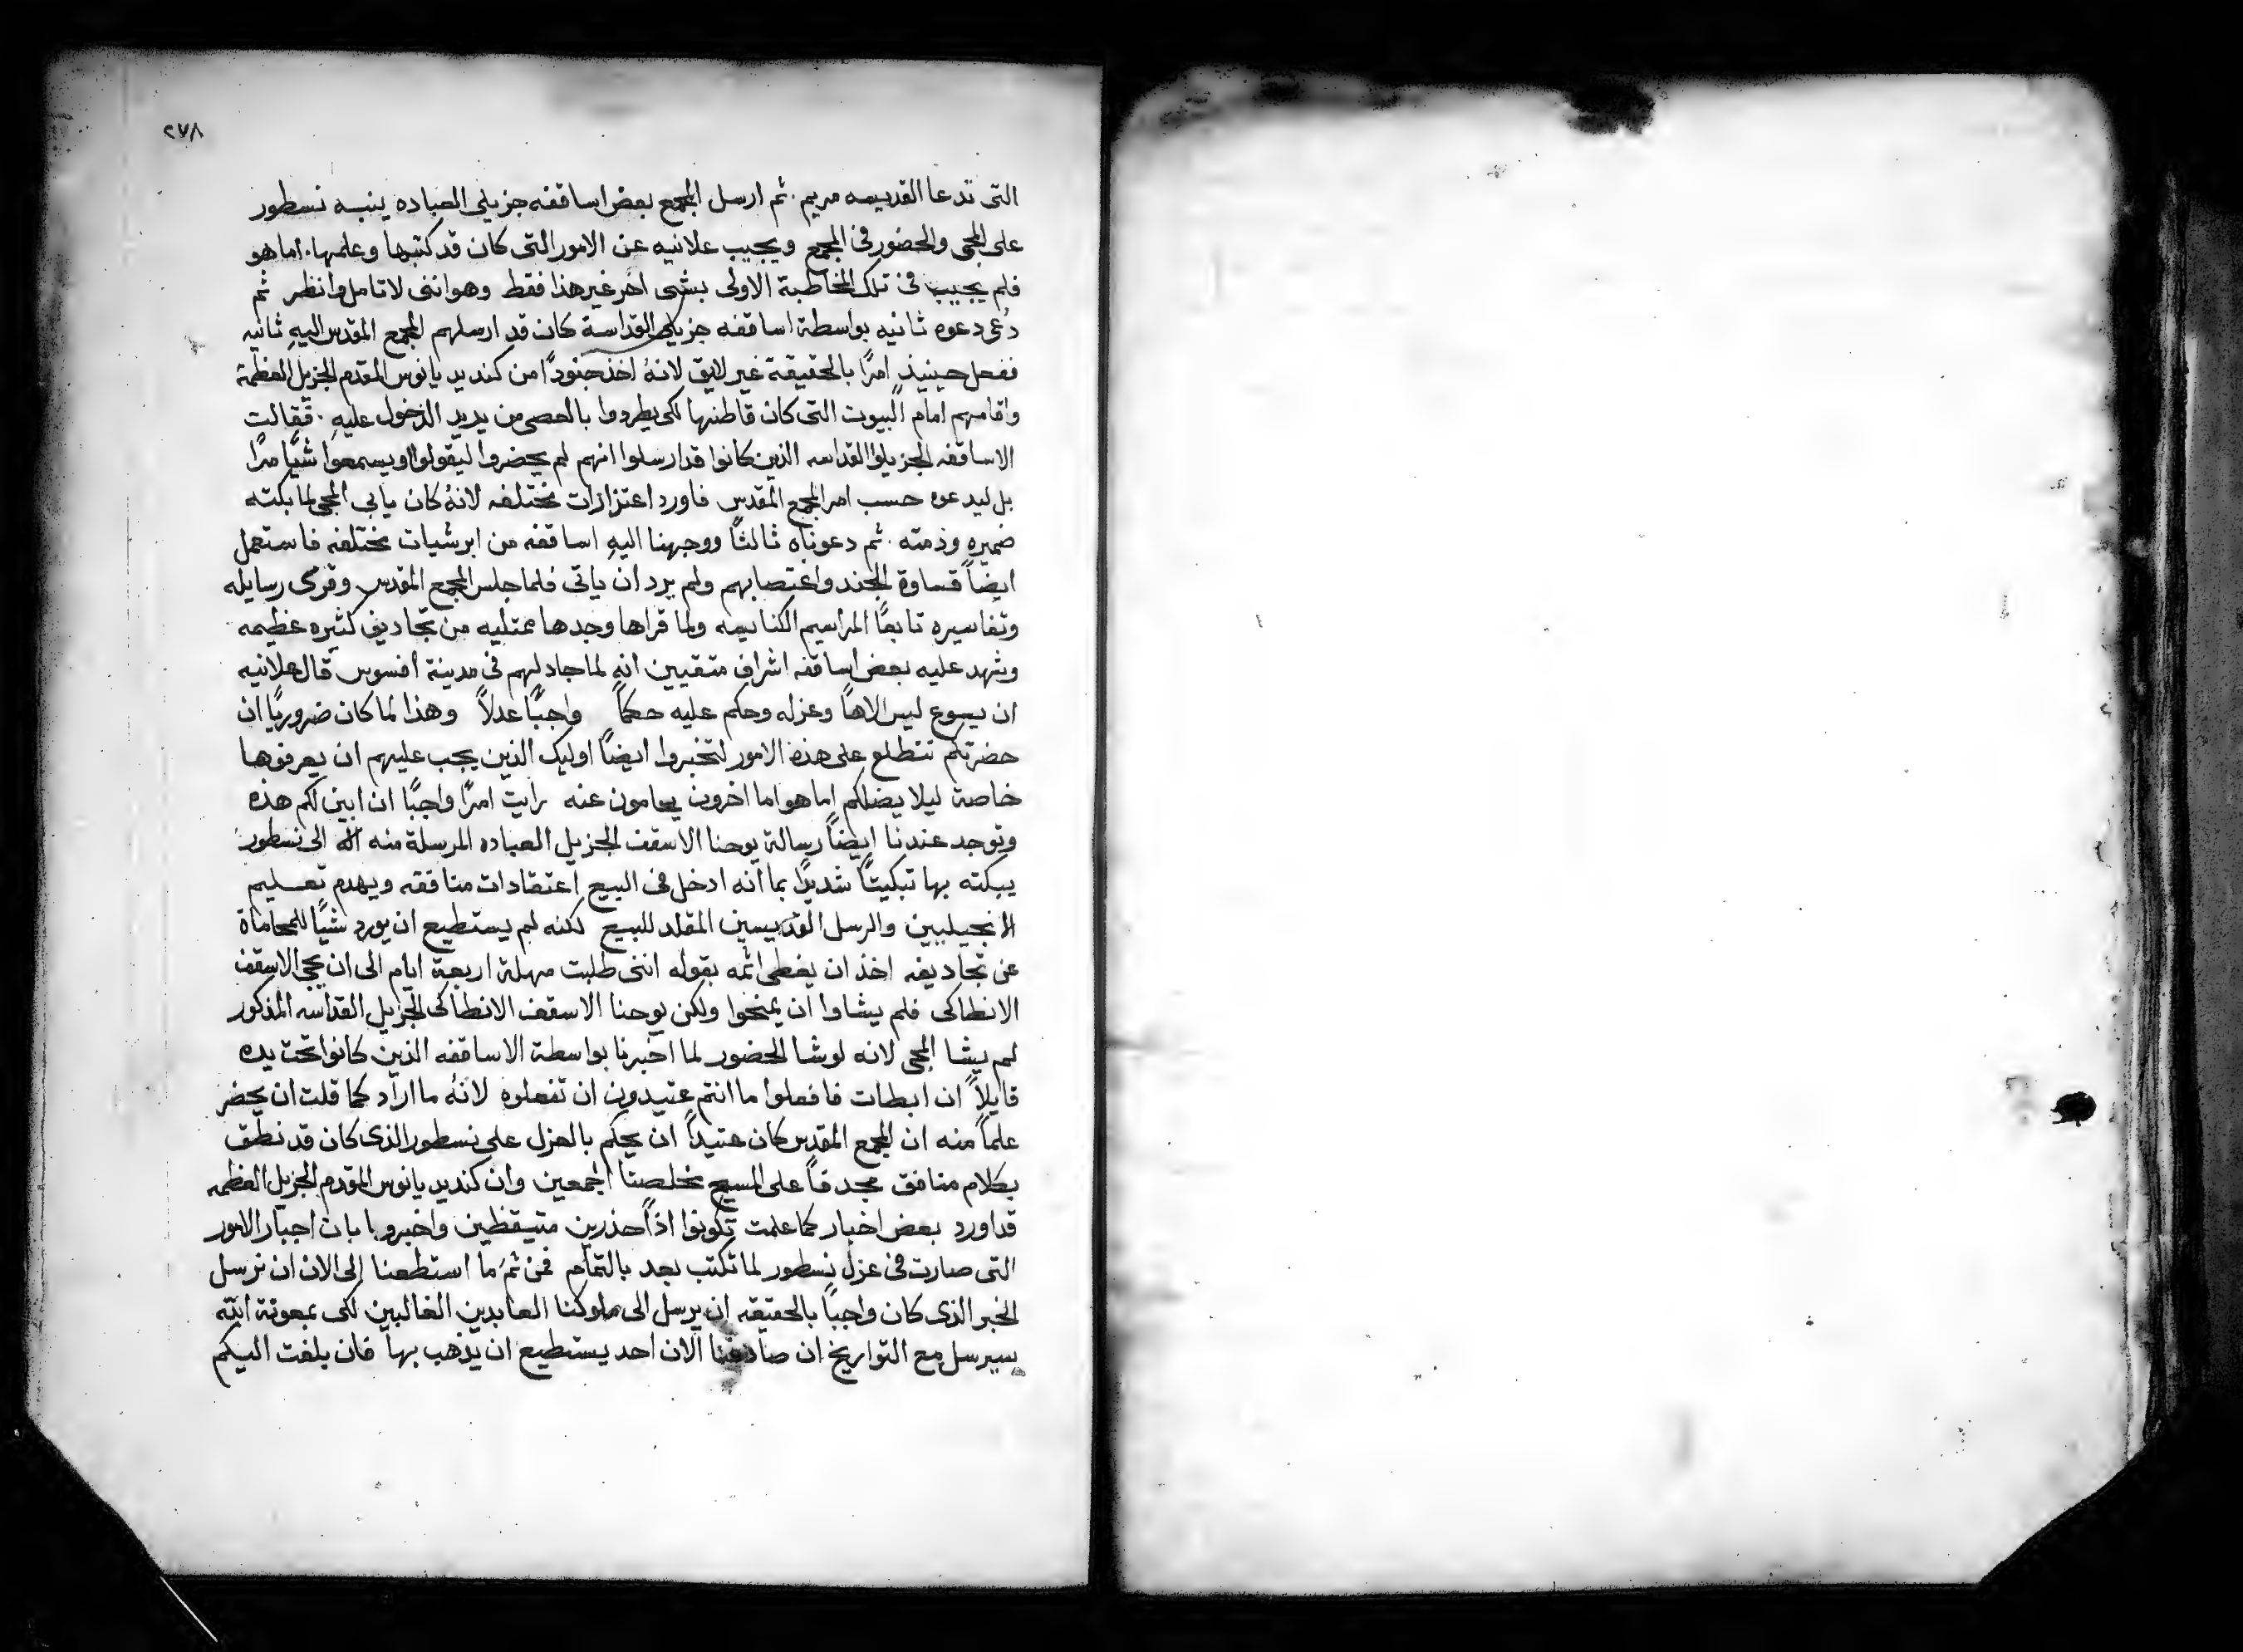 ٢٧٨
التى تدعا القديسه مريم . ثم ارسل المجمع بعض اساقفه جزيلى العباده ينبه نسطور
على المجى والحضور فى المجمع ويجيب علانيه عن الامور التى كان قد كتبها وعلمها . اما هو
فلم يجيب فى تلك المخاطبة الاولى بشى اخر غير هذا فقط وهو اننى لاتامل وانظر ثم
دُعى دعوه ثانيه بواسطة اساقفه جزيلى القداسة كان قد ارسلهم المجمع المقدس اليهِ ثانيه
ففعل حينيذٍ امرًا بالحقيقة غير لايق لانهُ اخذ جنودًا من كنديديانوس المقدم الجزيل العظمة
واقامهم امام البيوت التى كان قاطنها لكى يطردوا بالعصى من يريد الدخول عليهِ . فقالت
الاساقفه الجزيلوا القداسه الذين كانوا قد ارسلوا انهم لم يحضروا ليقولوا او يسمعوا شيًا مرًا
بل ليدعوه حسب امر المجمع المقدس فاورد اعتزازات مختلفه لانهُ كان يابى المجى لما بكته
ضميره وذمته . ثم دعوناه ثالثًا ووجهنا اليهِ اساقفه من ابرشيات مختلفه فاستعمل
ايضاً قساوة الجند واغتصابهم ولم يرد ان ياتى فلما جلس المجمع المقدس وقرى رسايله
وتفاسيره تابعًا المراسيم الكنايسه ولما قراها وجدها ممتليه من تجاديف كثيره عظيمه
وشهد عليه بعض اساقفه اشراف متقيين انه لما جادلهم فى مدينة افسوس قال علانيه
ان يسوع ليس الاهاً وعزله وحكم عليه حكماً واجبًا عدلاً وهذا لما كان ضروريًا ان
حضرتكم تتطلع على هذه الامور لتخبروا ايضًا اوليك الذين يجب عليهم ان يعرفوها
خاصة ليلا يضلكم اما هو اما اخرون يحامون عنه رايت امرًا واجبًا ان ابين لكم هذه
وتوجد عندنا ايضاً رسالة يوحنا الاسقف الجزيل العباده المرسلة منه الى نسطور
يبكته بها تبكيتًا شديدًا بما انه ادخل فى البيع اعتقادات منافقه ويهدم تعليم
الانجيليين والرسل القديسين المقلد للبيع لكنه لم يستطيع ان يورد شيًا للمحاماة
عن تجاديفه اخذ ان يغطى اثمه بقوله اننى طلبت مهلة اربعة ايام الى ان يجى الاسقف
الانطاكى فلم يشاوا ان يمنحوا ولكن يوحنا الاسقف الانطاكى الجزيل القداسه المذكور
لم يشا المجى لانه لو شا الحضور لما اخبرنا بواسطة الاساقفه الذين كانوا تحت يده
قايلاً ان ابطات فافعلوا ما انتم عتيدون ان تفعلوه لانهُ ما اراد كما قلت ان يحضر
علماً منه ان المجمع المقدس كان عتيداً ان يحكم بالعزل على نسطور الذى كان قد نطق
بكلام منافق مجدفاً على المسيح مخلصنا اجمعين وان كنديديانوس المقدم الجزيل العظمه
قد اورد بعض اخبار كما علمت تكونوا اذاً حذرين متيقظين واخبروا بان اخبار الامور
التى صارت فى عزل نسطور لما تكتب بعد بالتمام فمن ثم ما استطعنا الى الان ان نرسل
الخبر الذى كان واجبًا بالحقيقه ان يرسل الى ملوكنا العابدين الغالبين لكى بمعونة الله
سيرسل مع التواريخ ان صادفنا الان احد يستطيع ان يذهب بها فان بلغت اليكم